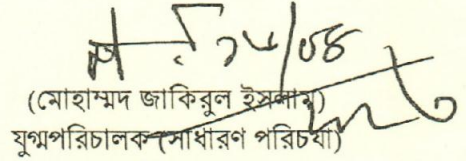 ১৮/০৪
(মোহাম্মদ জাকিরুল ইসলাম)
যুগ্মপরিচালক (সাধারণ পরিচর্যা)